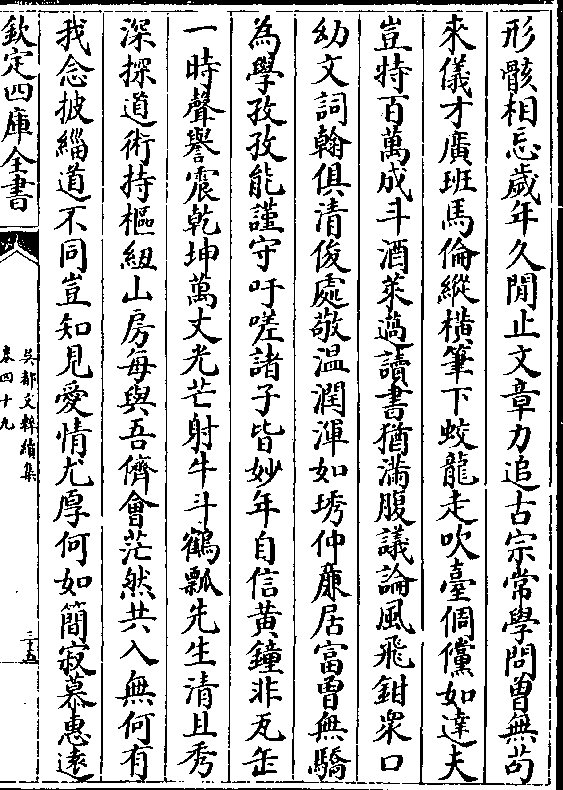 形骸相忘歲年久閒止文章力追古宗常學問曽無苟
來儀才廣班馬倫縱橫筆下蛟龍走吹臺倜儻如達夫
豈特百萬成斗酒萊薖讀書猶滿腹議論風飛鉗衆口
幼文詞翰俱清俊處敬温潤渾如琇仲廉居富曽無驕
為學孜孜能謹守吁嗟諸子皆妙年自信黄鐘非瓦缶
一時聲譽震乾坤萬丈光芒射牛斗鶴瓢先生清且秀
深探道術持樞紐山房每與吾儕會茫然共入無何有
我念披緇道不同豈知見愛情尤厚何如簡寂慕惠遠
欽定四庫全書
吳都文粹續集
卷四十九
三十五